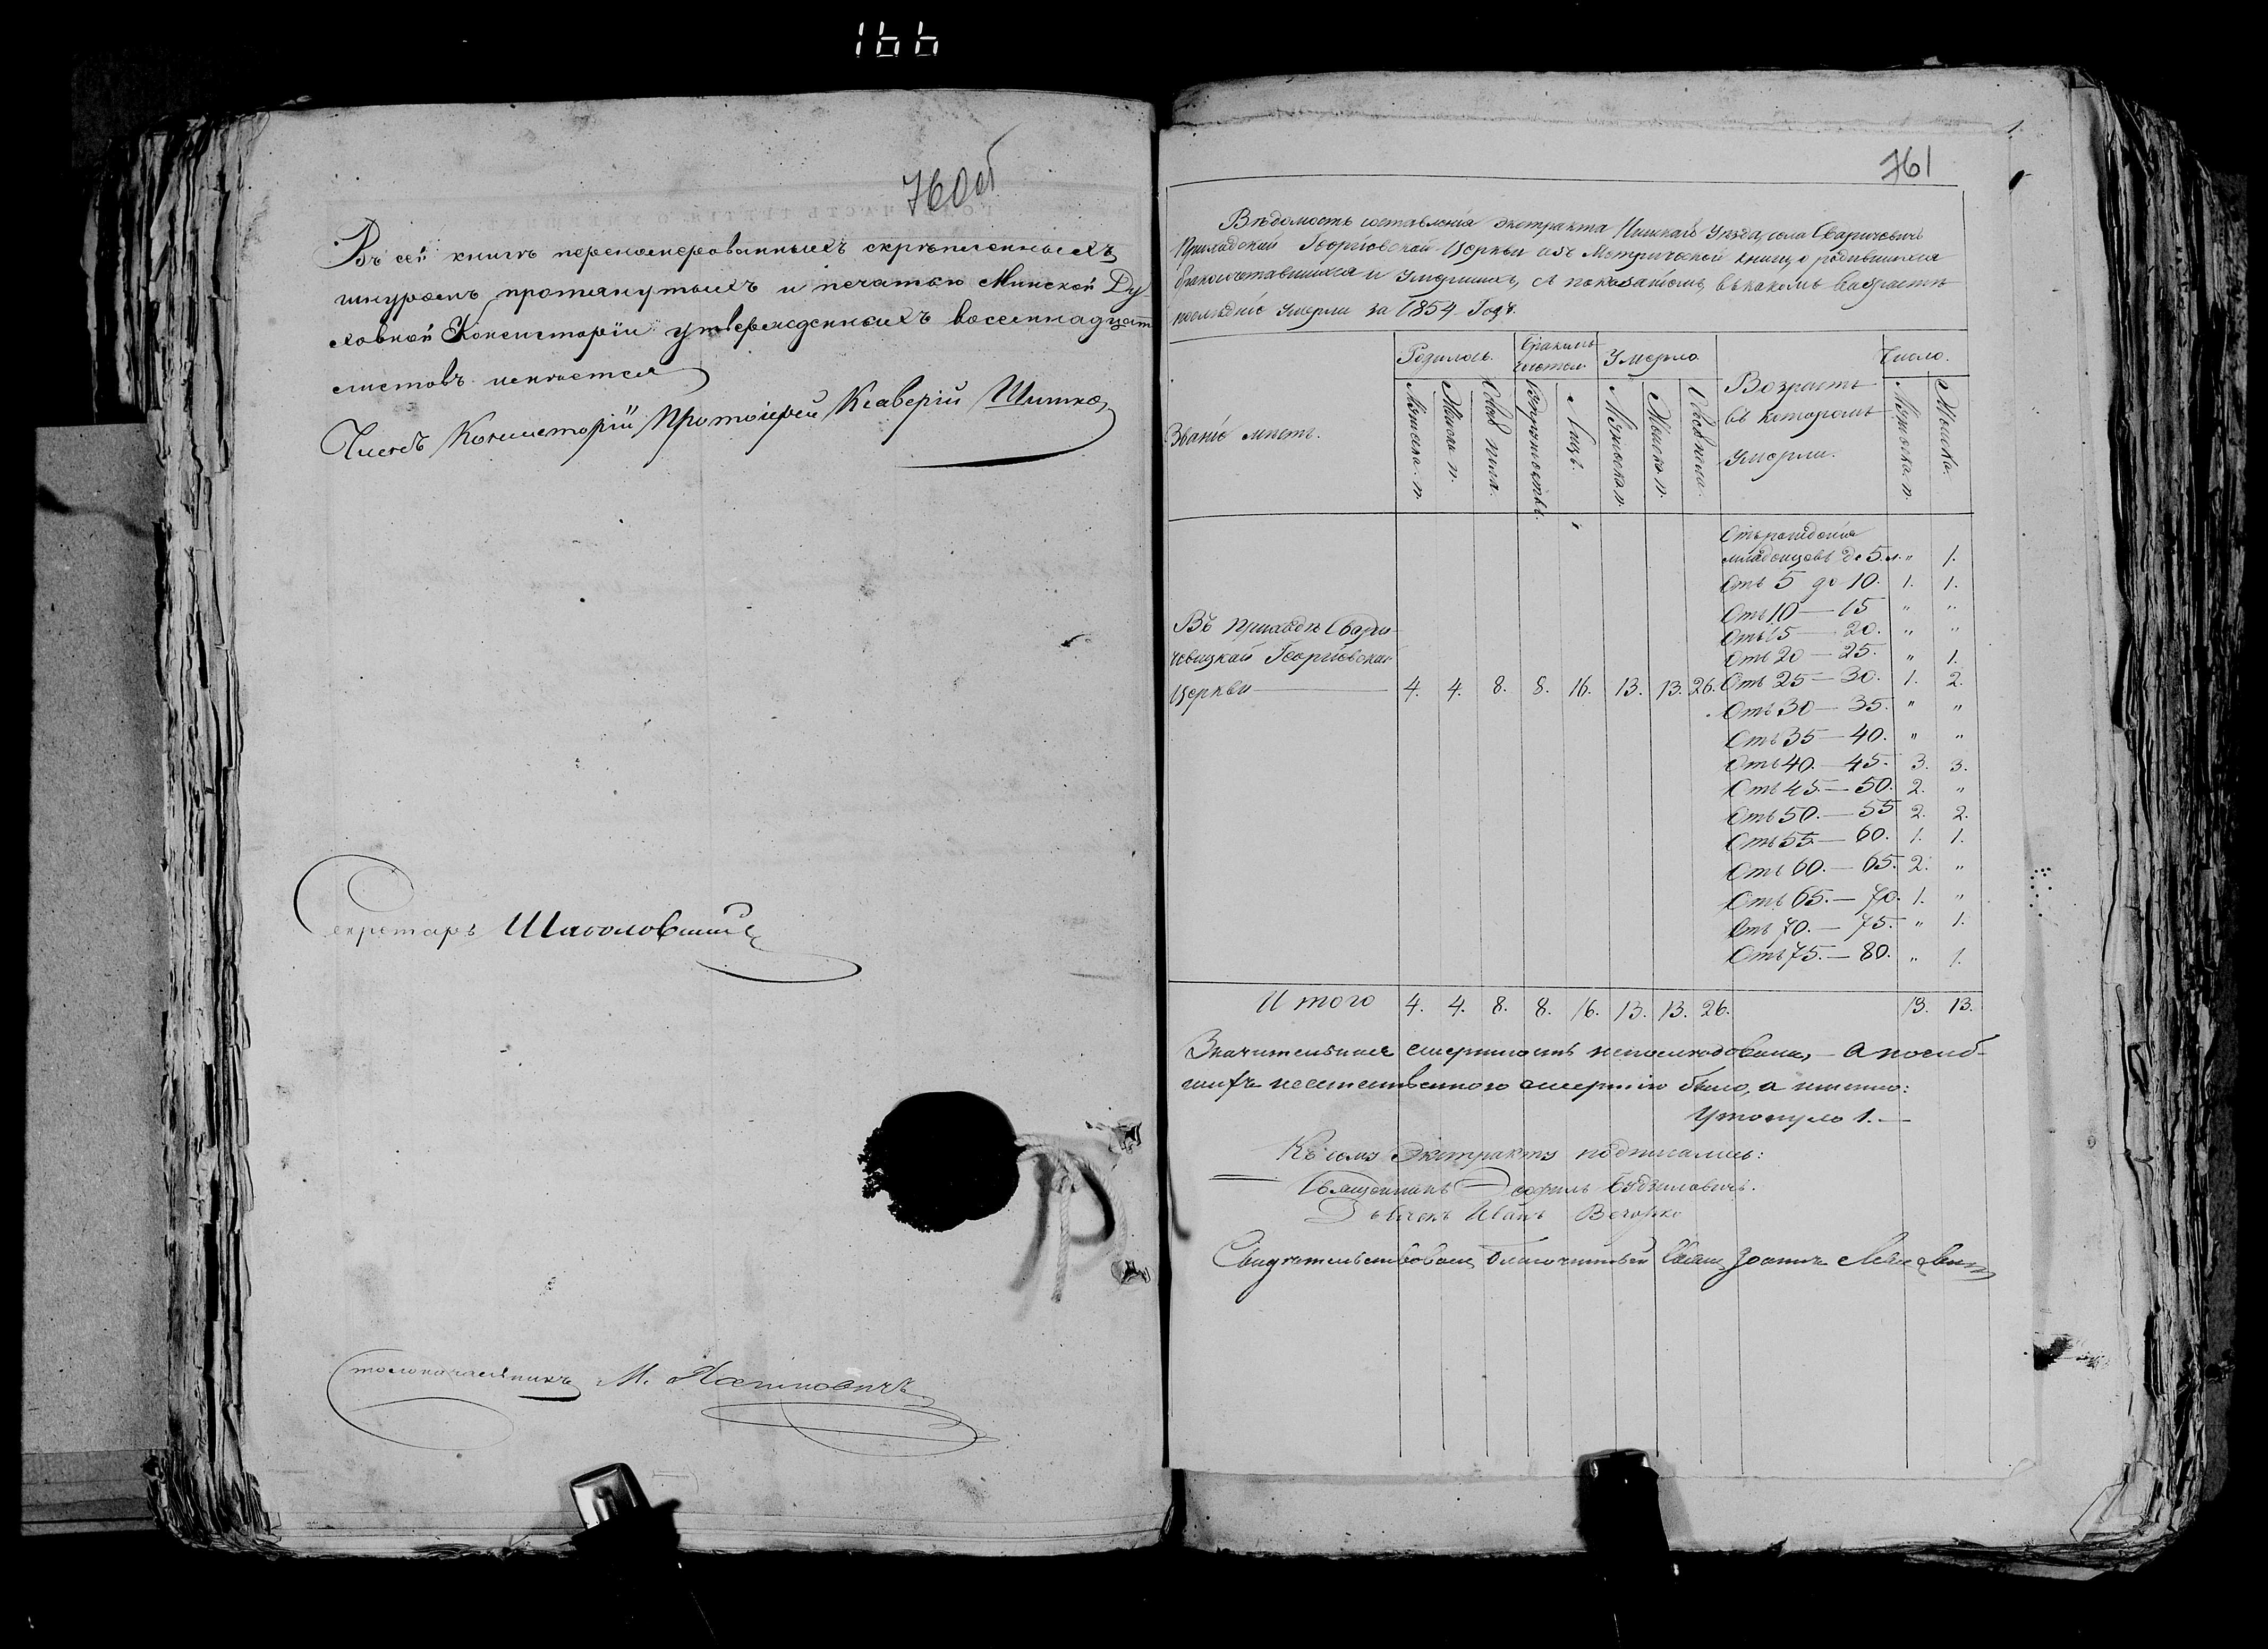 166
760об
Въ сей книгѣ перенумерованныхъ скрѣпленныхъ
шнуромъ протянутыхъ и печатью Минской Ду
ховной Консисторіи утвержденныхъ восемнадцать
листовъ имѣется
Членъ Консисторіи Протоіерей Ксаверій Шитко
Секретарь
Столоначальникъ М.
761
Вѣдомость составленія экстракта Пинскаго Уѣзда, села Сваричевичь
Приходской Георгіевской Церкви изъ Метрической книги, о родившихся
бракосочетавшихся и Умершихъ, съ показаніемъ, въ какомъ возрастѣ
послѣдніе Умерли за 1854 Годъ.
Званіе мѣстъ.
Родилось.
Бракомъ
сочетал.
Умерло.
Возрастъ
въ которомъ
Умерли.
Число.
Мужеска. п.
Женска п.
Обоего пола.
Лицъ.
Мужеска п.
Женска п.
Обоего пола.
Мужеска. п.
Женска.
Отъ рожденія
младенцевъ до 5 л. " 1.
Отъ 5 до 10. 1. 1.
Отъ 10 — 15 " "
Отъ 15 — 20. " "
Отъ 20 — 25. " 1.
Въ Приходѣ Свари-
чевицкой Георгіевской
Церкви — 4. 4. 8. 8. 16. 13. 13. 26. Отъ 25 — 30. 1. 2.
Отъ 30 — 35. " "
Отъ 35 — 40. " "
Отъ 40. — 45. 3. 3.
Отъ 45. — 50. 2. "
Отъ 50. — 55 2. 2.
Отъ 55. — 60. 1. 1.
Отъ 60. — 65. 2. "
Отъ 65. — 70. 1. "
Отъ 70. — 75. " 1.
Отъ 75. — 80. " 1.
Итого 4. 4. 8. 8. 16. 13. 13. 26. 13. 13.
Значительной смертности непослѣдовало, — а
неестественною смертію было, а именно:
Утонуло 1. —
Къ сему Экстракту подписались:
Священникъ
Иванъ
Свидѣтельствовалъ Благочинный Свящ Іоаннъ